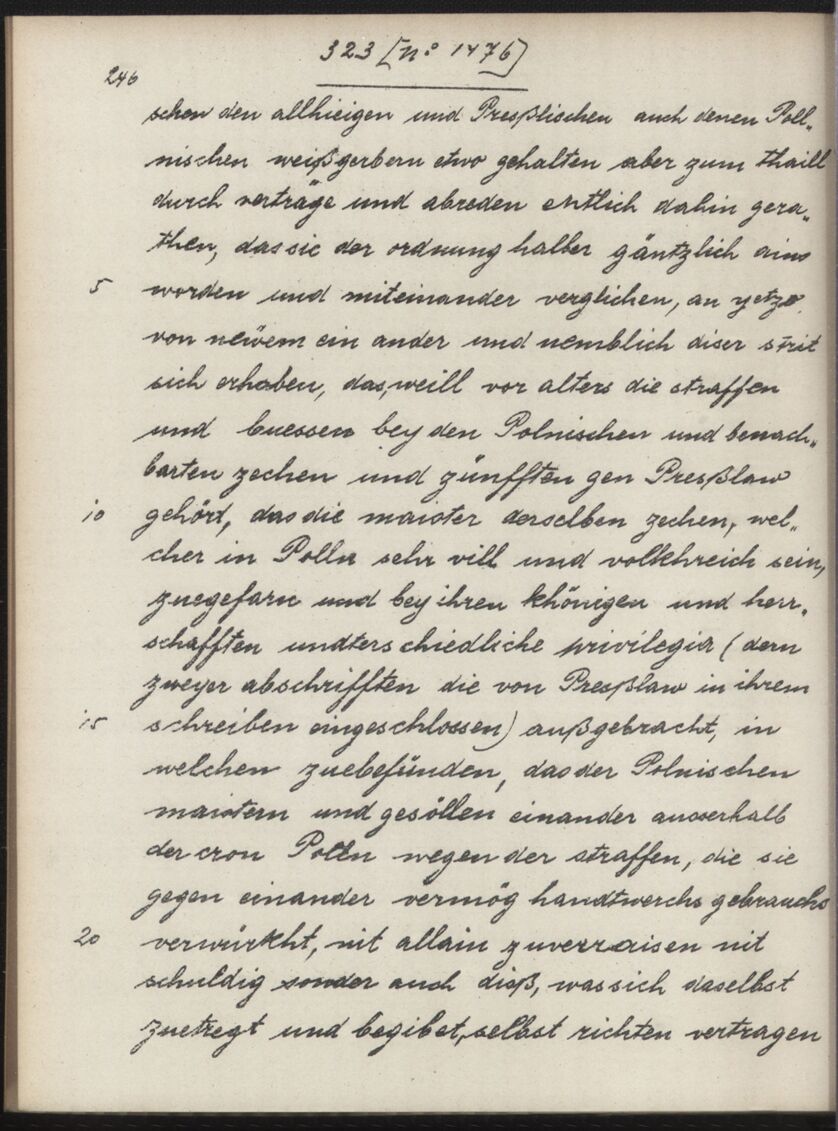 323 [No 1476]
246
schen den allhieigen und Presßlischen auch denen Poll„
nischen weißgerbern etwo gehalten aber zum thaill
durch verträge und abreden entlich dahin gera„
then, das sie der ordnung halber gäntzlich ains
5 worden und miteinander verglichen, an yetzo
von newem ein ander und nemblich diser strit
sich erhoben, das, weill vor alters die straffen
und buessen bey den Polnischen und benach„
barten zechen und zünfften gen Presßlaw
10 gehört, das die maister derselben zechen, wel„
cher in Polln sehr vill und volkhreich sein,
zuegefarn und bey ihren khönigen und herr„
schafften undterschiedliche privilegia (dern
zweyer abschrifften die von Presßlaw in ihrem
15 schreiben eingeschlossen) außgebracht, in
welchen zuebefünden, das der Polnischen
maistern und gesöllen einander ausserhalb
der cron Polln wegen der straffen, die sie
gegen einander vermög handtwerchs gebrauchs
20 verwürkht, nit allain zuverraisen nit
schuldig sonder auch dieß, was sich daselbst
zuetregt und begibet, selbst richten vertragen